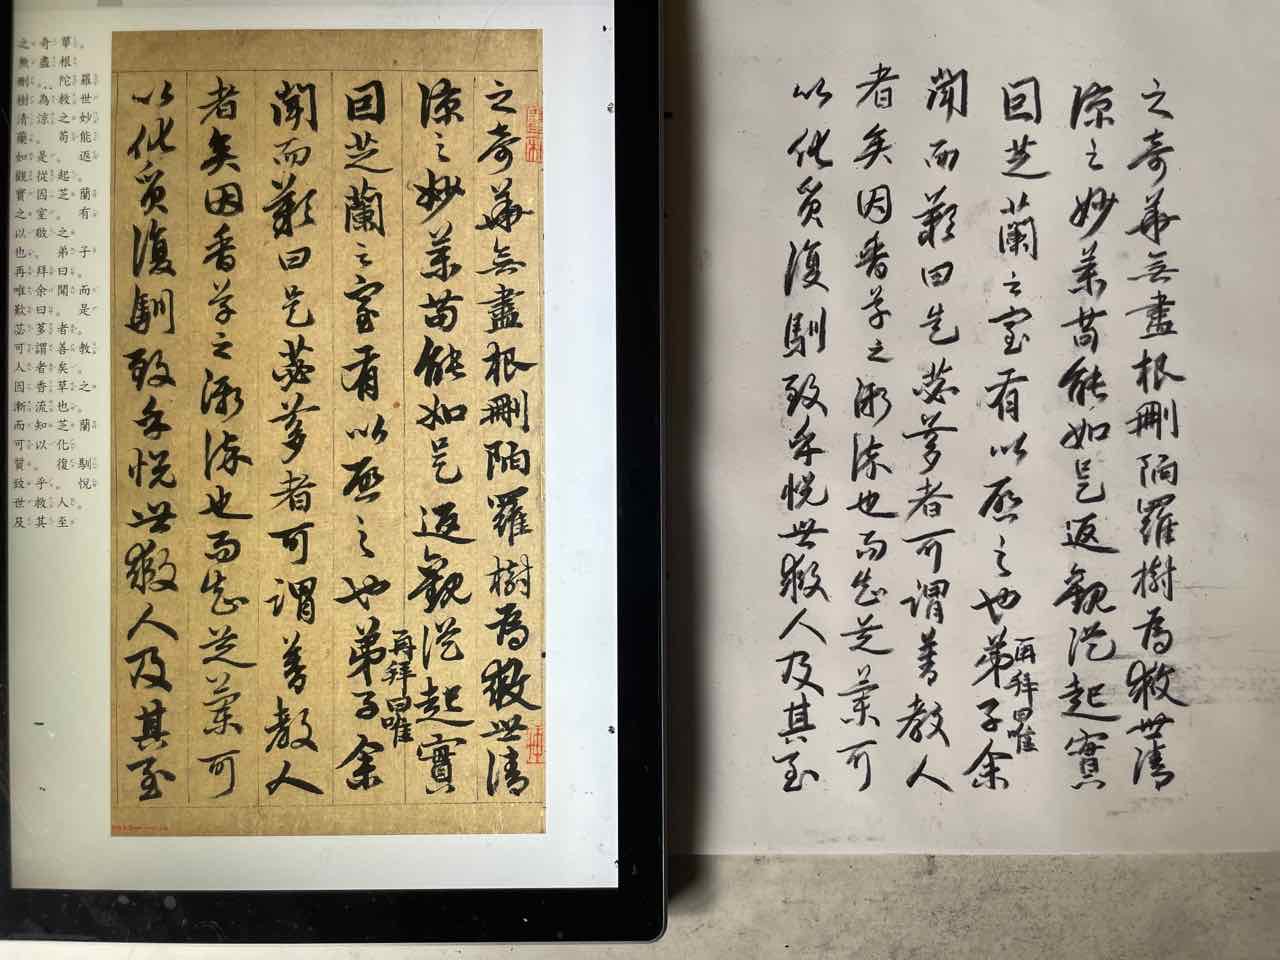 之奇華。
無盡根
刪。陀羅
樹為救世
清涼之妙
藥。苟能
如是。返
觀從起
實因芝蘭
之室。有
以啟之
也。弟子
再拜曰。
唯余聞而
歎曰。是
苾芻者。
可謂善教
人者矣。
因香草之
漸流也。
而知芝蘭
可以化
質。復馴
致乎。悅
世救人。
及其至
之奇華無盡根刪陀羅樹為救世清
涼之妙藥苟能如是返觀從起實
因芝蘭之室有以啟之也弟子再拜曰唯余
聞而歎曰是苾芻者可謂善教人
者矣因香草之漸流也而知芝蘭可
以化質復馴致乎悅世救人及其至
之奇華無盡根刪陀羅樹為救世清
涼之妙藥苟能如是返觀從起實
因芝蘭之室有以啟之也弟子再拜曰唯余
聞而歎曰是苾芻者可謂善教人
者矣因香草之漸流也而知芝蘭可
以化質復馴致乎悅世救人及其至